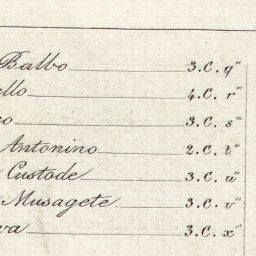 Balbo 3.C.q'''
ello 4.C. r'''
o 3.C. s'''
Antonino 2.C. t'''
Custode 3.C. u'''
Musagete 3.C. v'''
va 3.C. x'''